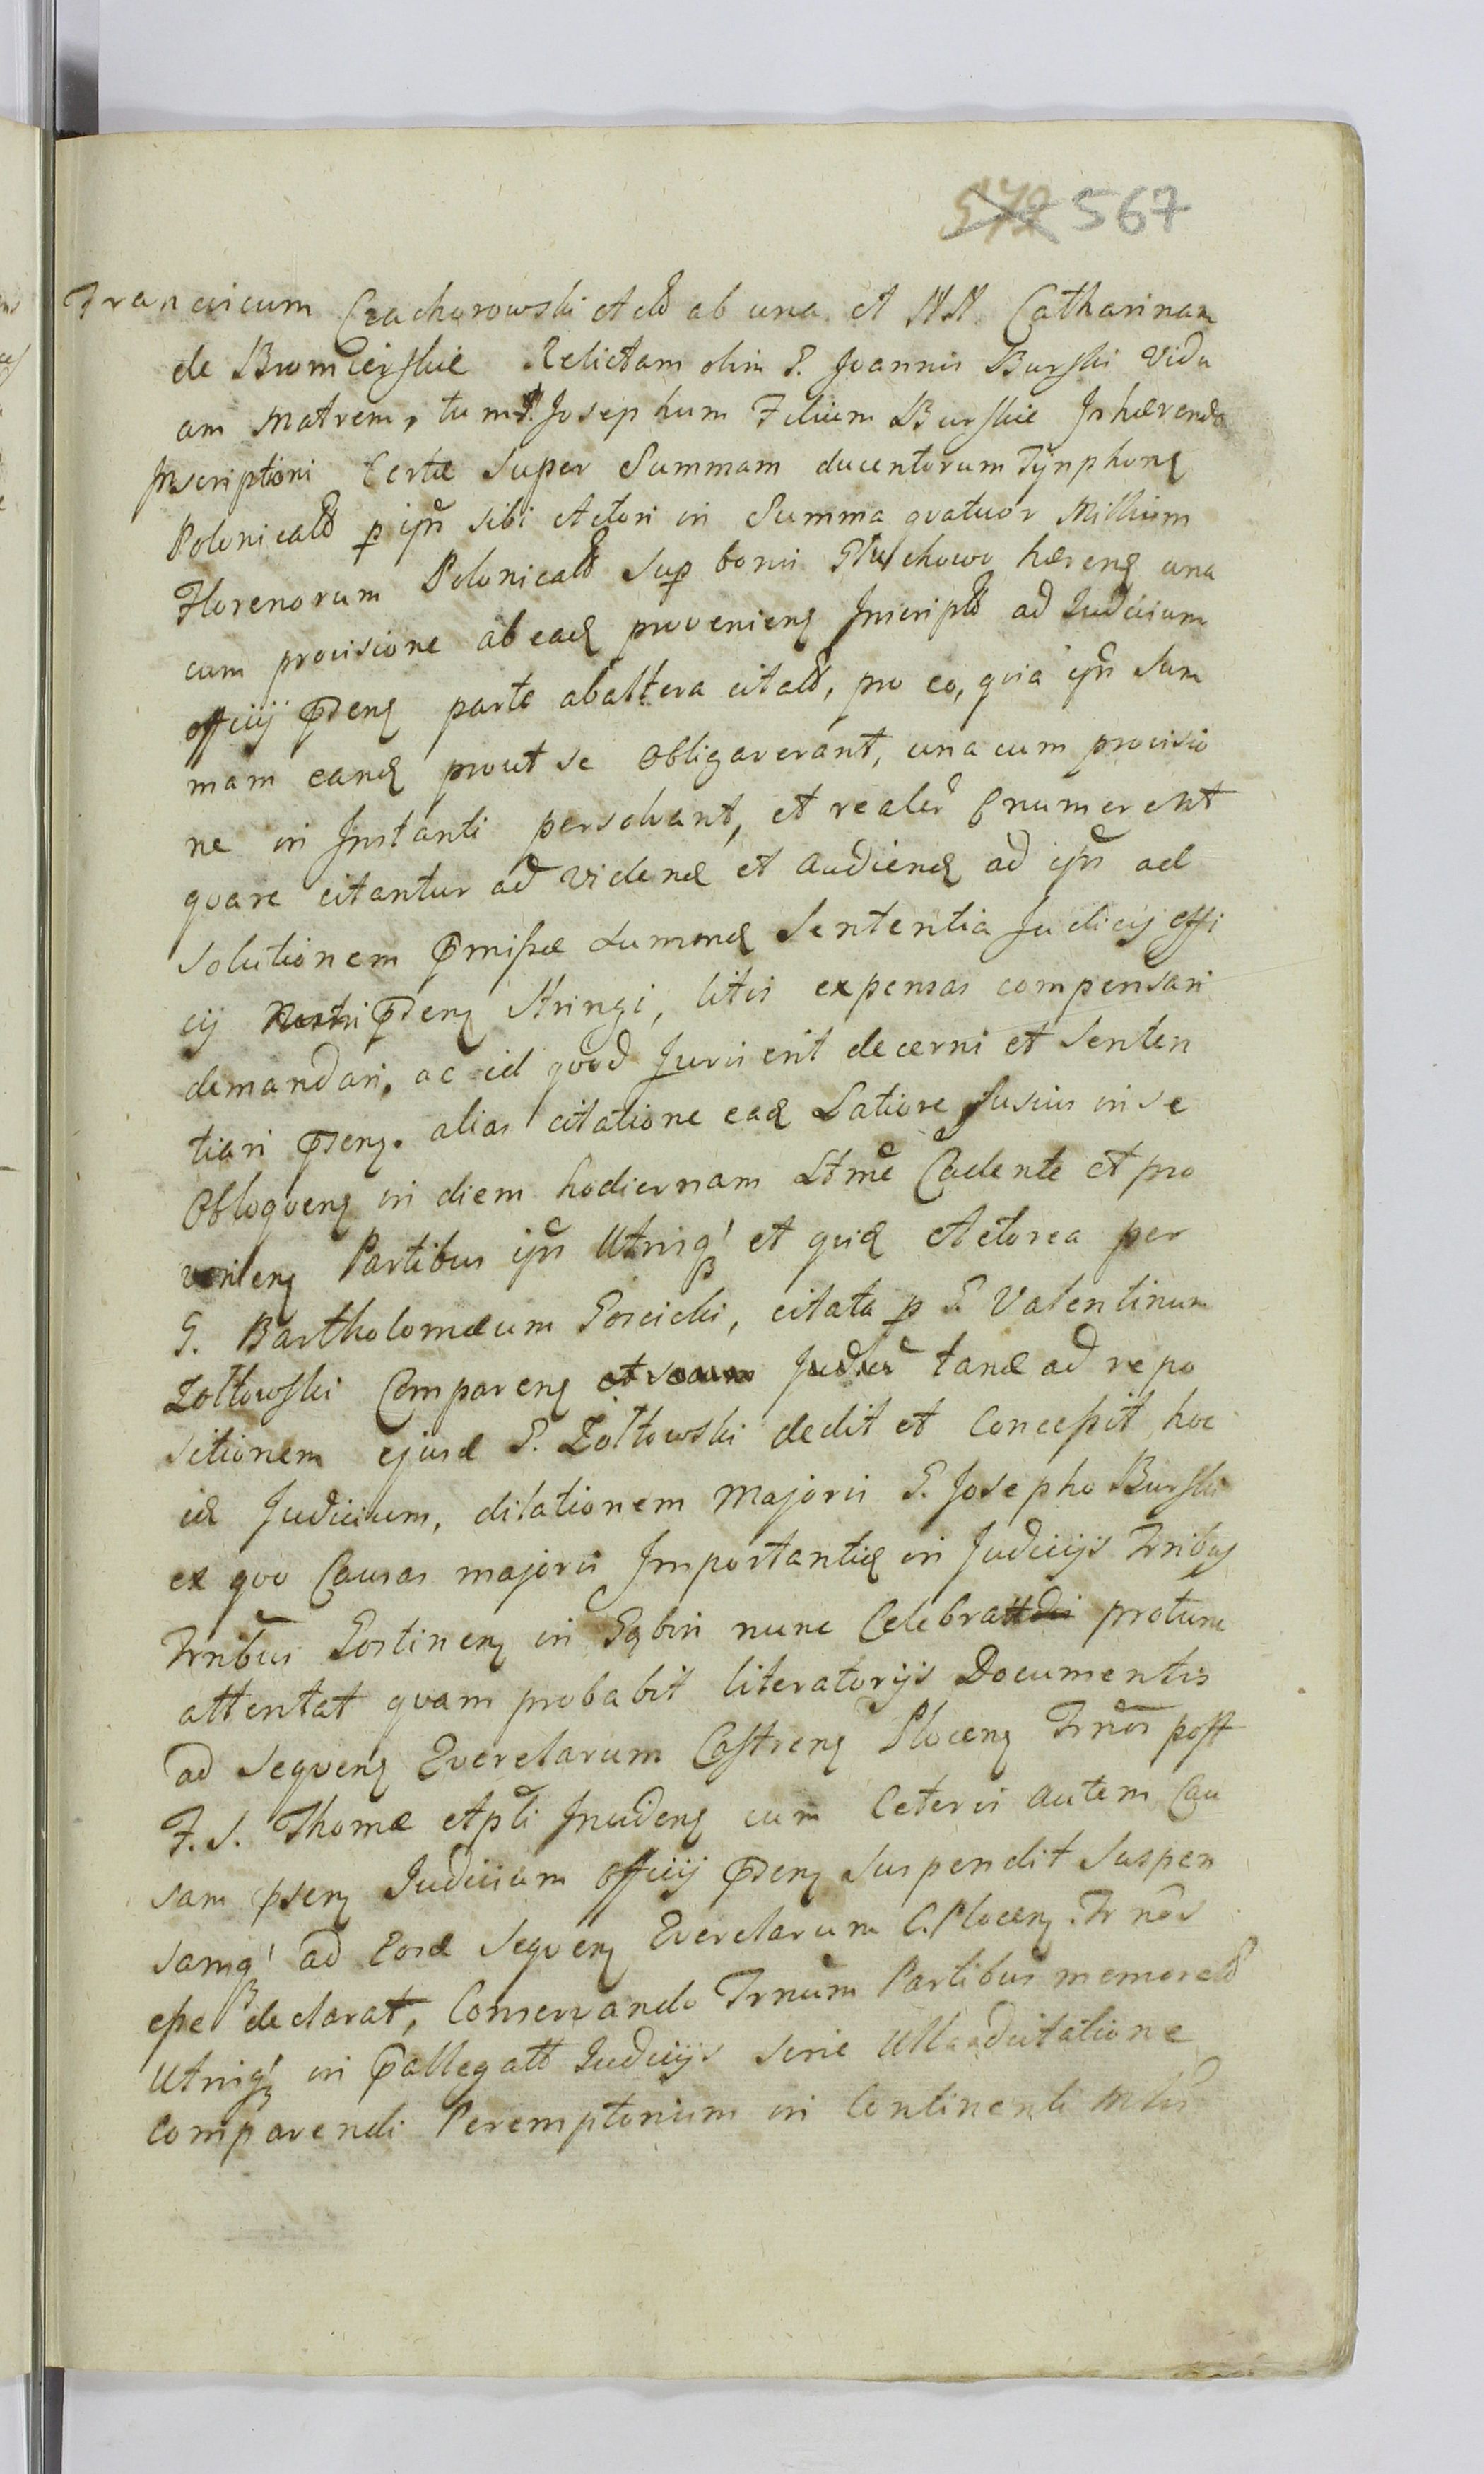 572 567
Franciscum Czachorowski Actō ab una et NN Catharinam
de Bromierskie Relictam olim G. Joannis Burski Vidu
am Matrem, tum G. Josephum Filium Burskie Inhærendo
Inscriptioni Certæ Super Summam ducentorum Tynphonꝝ
Polonicalō p ipsū sibi Actori in Summa qvatuor Millium
Florenorum Polonicalō Sup bonis Głuchowo hærenꝝ una
cum provisione ab eadꝫ provenienꝫ Inscriptō ad Judicium
officij pñtenꝫ parte ab altera citatō, pro eo, qvia ipsi Sum
mam eandꝫ prout se obligaverant, una cum provisio
ne in Instanti persolvant, et realēr enumerent
qvare citantur ad videndꝫ et audiendꝫ ad ipsū ad
solutionem pmissæ Summæ Sententia Judicij offi
cij Nostri pñtenꝫ Stringi, litis expensas compensari
demandari, ac id qvod Juris erit decerni et Senten
tiari pñtenꝫ. alias citatione eadꝫ Latiore fusius in se
Obloqvenꝫ in diem hodiernam Ltmē Cadente et pro
venienꝫ Partibus ipsis Utrisqꝫ et qvidꝫ Actorea per
G. Bartholomæum Goscicki, citata p G. Valentinum
Zółtowski Comparenꝫ Judiēr tandꝫ ad repo
sitionem ejusdꝫ G. Zółtowski dedit et Concessit hoc
idꝫ Judicium, dilationem Majoris G. Josepho Burski
ex qvo Causas majoris Importantiæ in Judicijs Trnlibus
Trnlibus Postinenꝫ in nunc Celebran protunc
attentat qvam probabit literatorijs Documentis
ad Seqvenꝫ Qverelarum Castrenꝫ Plocenꝫ Trnōs post
F. S. Thomæ Apli Incidenꝫ cum Ceteris autem Cau
sam pñtenꝫ Judicium officij pñtenꝫ Suspendit Suspen
samqꝫ ad Eosdꝫ Seqvenꝫ Qverelarum C. Plocenꝫ Trnōs
esse declarat, Conservando Trnūm Partibus memoratō
Utrisqꝫ in pallegatō Judicijs Sine Ulla adcitatione
Comparendi Peremptorium in Continenti